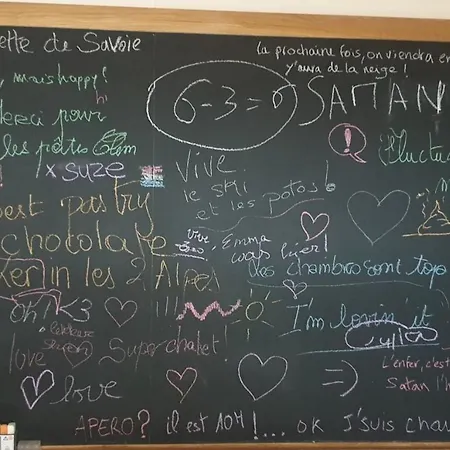 ette de Savoie
la prochaine fois, on viendra en
y'aura de la neige !
mais happy !
6-3=0
SATAN
Merci pour
hi
les petits
x suze
!
Fluctu
Vive
le ski
et les potos !
best pastry
chocolate
vive
Emma
was hier !
les chambres sont top
in les 2 Alpes
oh! <3
!!!
I'm lovin' it
love
Super chalet !
=)
L'enfer, c'est
Satan l'h
love
APERO? il est 10H !... ok J'suis chau